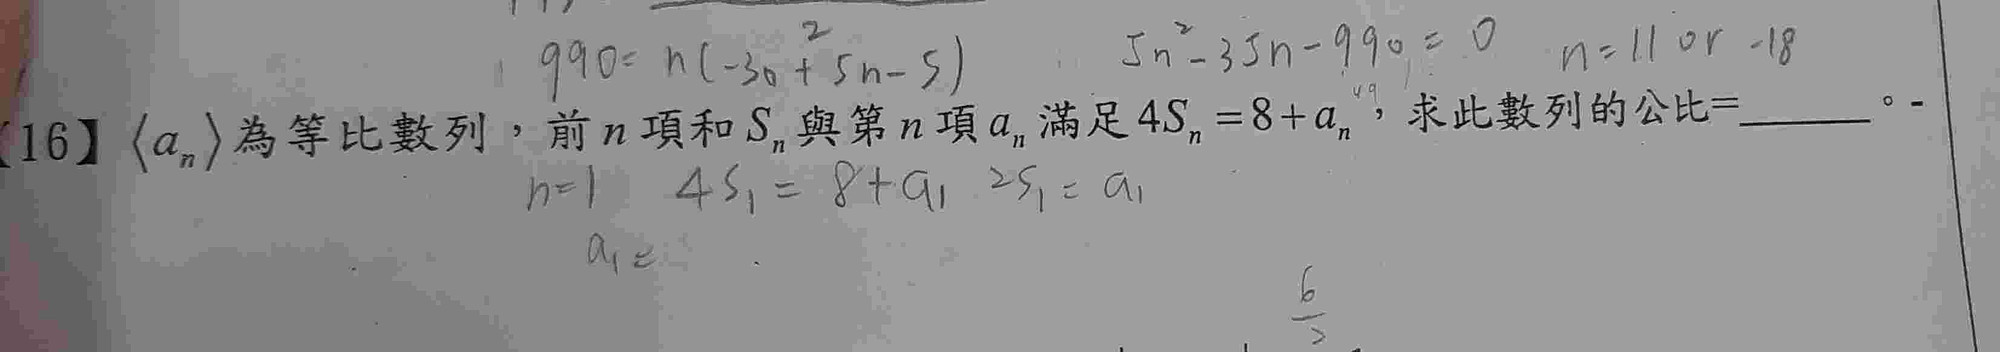 990 = n(-30 + 5n - 5) / 2
5n² - 35n - 990 = 0 n = 11 or -18
【16】⟨aₙ⟩為等比數列，前 n 項和 Sₙ 與第 n 項 aₙ 滿足 4Sₙ = 8 + aₙ，求此數列的公比=______。
n=1 4S₁ = 8 + a₁ 2S₁ = a₁
a₁ =
6